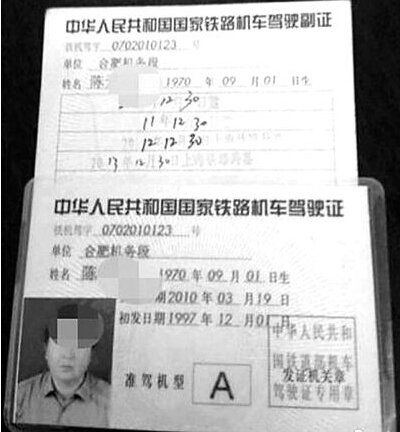 中华人民共和国国家铁路机车驾驶副证
铁机驾字 0702010123 号
单位 合肥机务段
姓名 陈 1970 年 09 月 01 日生
12 30
11 12 30
12 12 30
13 12 30
中华人民共和国国家铁路机车驾驶证
铁机驾字 0702010123 号
单位 合肥机务段
姓名 陈 1970 年 09 月 01 日生
期 2010 年 03 月 19 日
初发日期 1997 年 12 月 01 日
准驾机型 A
中华人民共和
国铁道部机车
发证机关章
驾驶证专用章